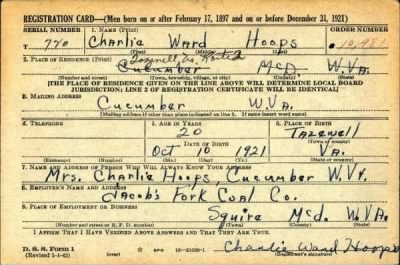 REGISTRATION CARD—(Men born on or after February 17, 1897 and on or before December 31, 1921)
SERIAL NUMBER 1. NAME (Print) ORDER NUMBER
770 Charlie Ward Hoops 10,981
(First) (Middle) (Last)
2. PLACE OF RESIDENCE (Print)
Cucumber McD. W.VA.
(Number and street) (Town, township, village, or city) (County) (State)
[THE PLACE OF RESIDENCE GIVEN ON THE LINE ABOVE WILL DETERMINE LOCAL BOARD
JURISDICTION; LINE 2 OF REGISTRATION CERTIFICATE WILL BE IDENTICAL]
3. MAILING ADDRESS
Cucumber W.VA.
[Mailing address if other than place indicated on line 2. If same insert word same]
4. TELEPHONE 5. AGE IN YEARS 6. PLACE OF BIRTH
20 Tazewell
DATE OF BIRTH (Town or county)
Oct 10 1921 VA.
(Exchange) (Number) (Mo.) (Day) (Yr.) (State or country)
7. NAME AND ADDRESS OF PERSON WHO WILL ALWAYS KNOW YOUR ADDRESS
Mrs. Charlie Hoops, Cucumber W.Va.
8. EMPLOYER'S NAME AND ADDRESS
Jacob's Fork Coal Co.
9. PLACE OF EMPLOYMENT OR BUSINESS
Squire McD. W.VA.
(Number and street or R. F. D. number) (Town) (County) (State)
I AFFIRM THAT I HAVE VERIFIED ABOVE ANSWERS AND THAT THEY ARE TRUE.
D. S. S. Form 1
(Revised 1-1-42) Charlie Ward Hoops